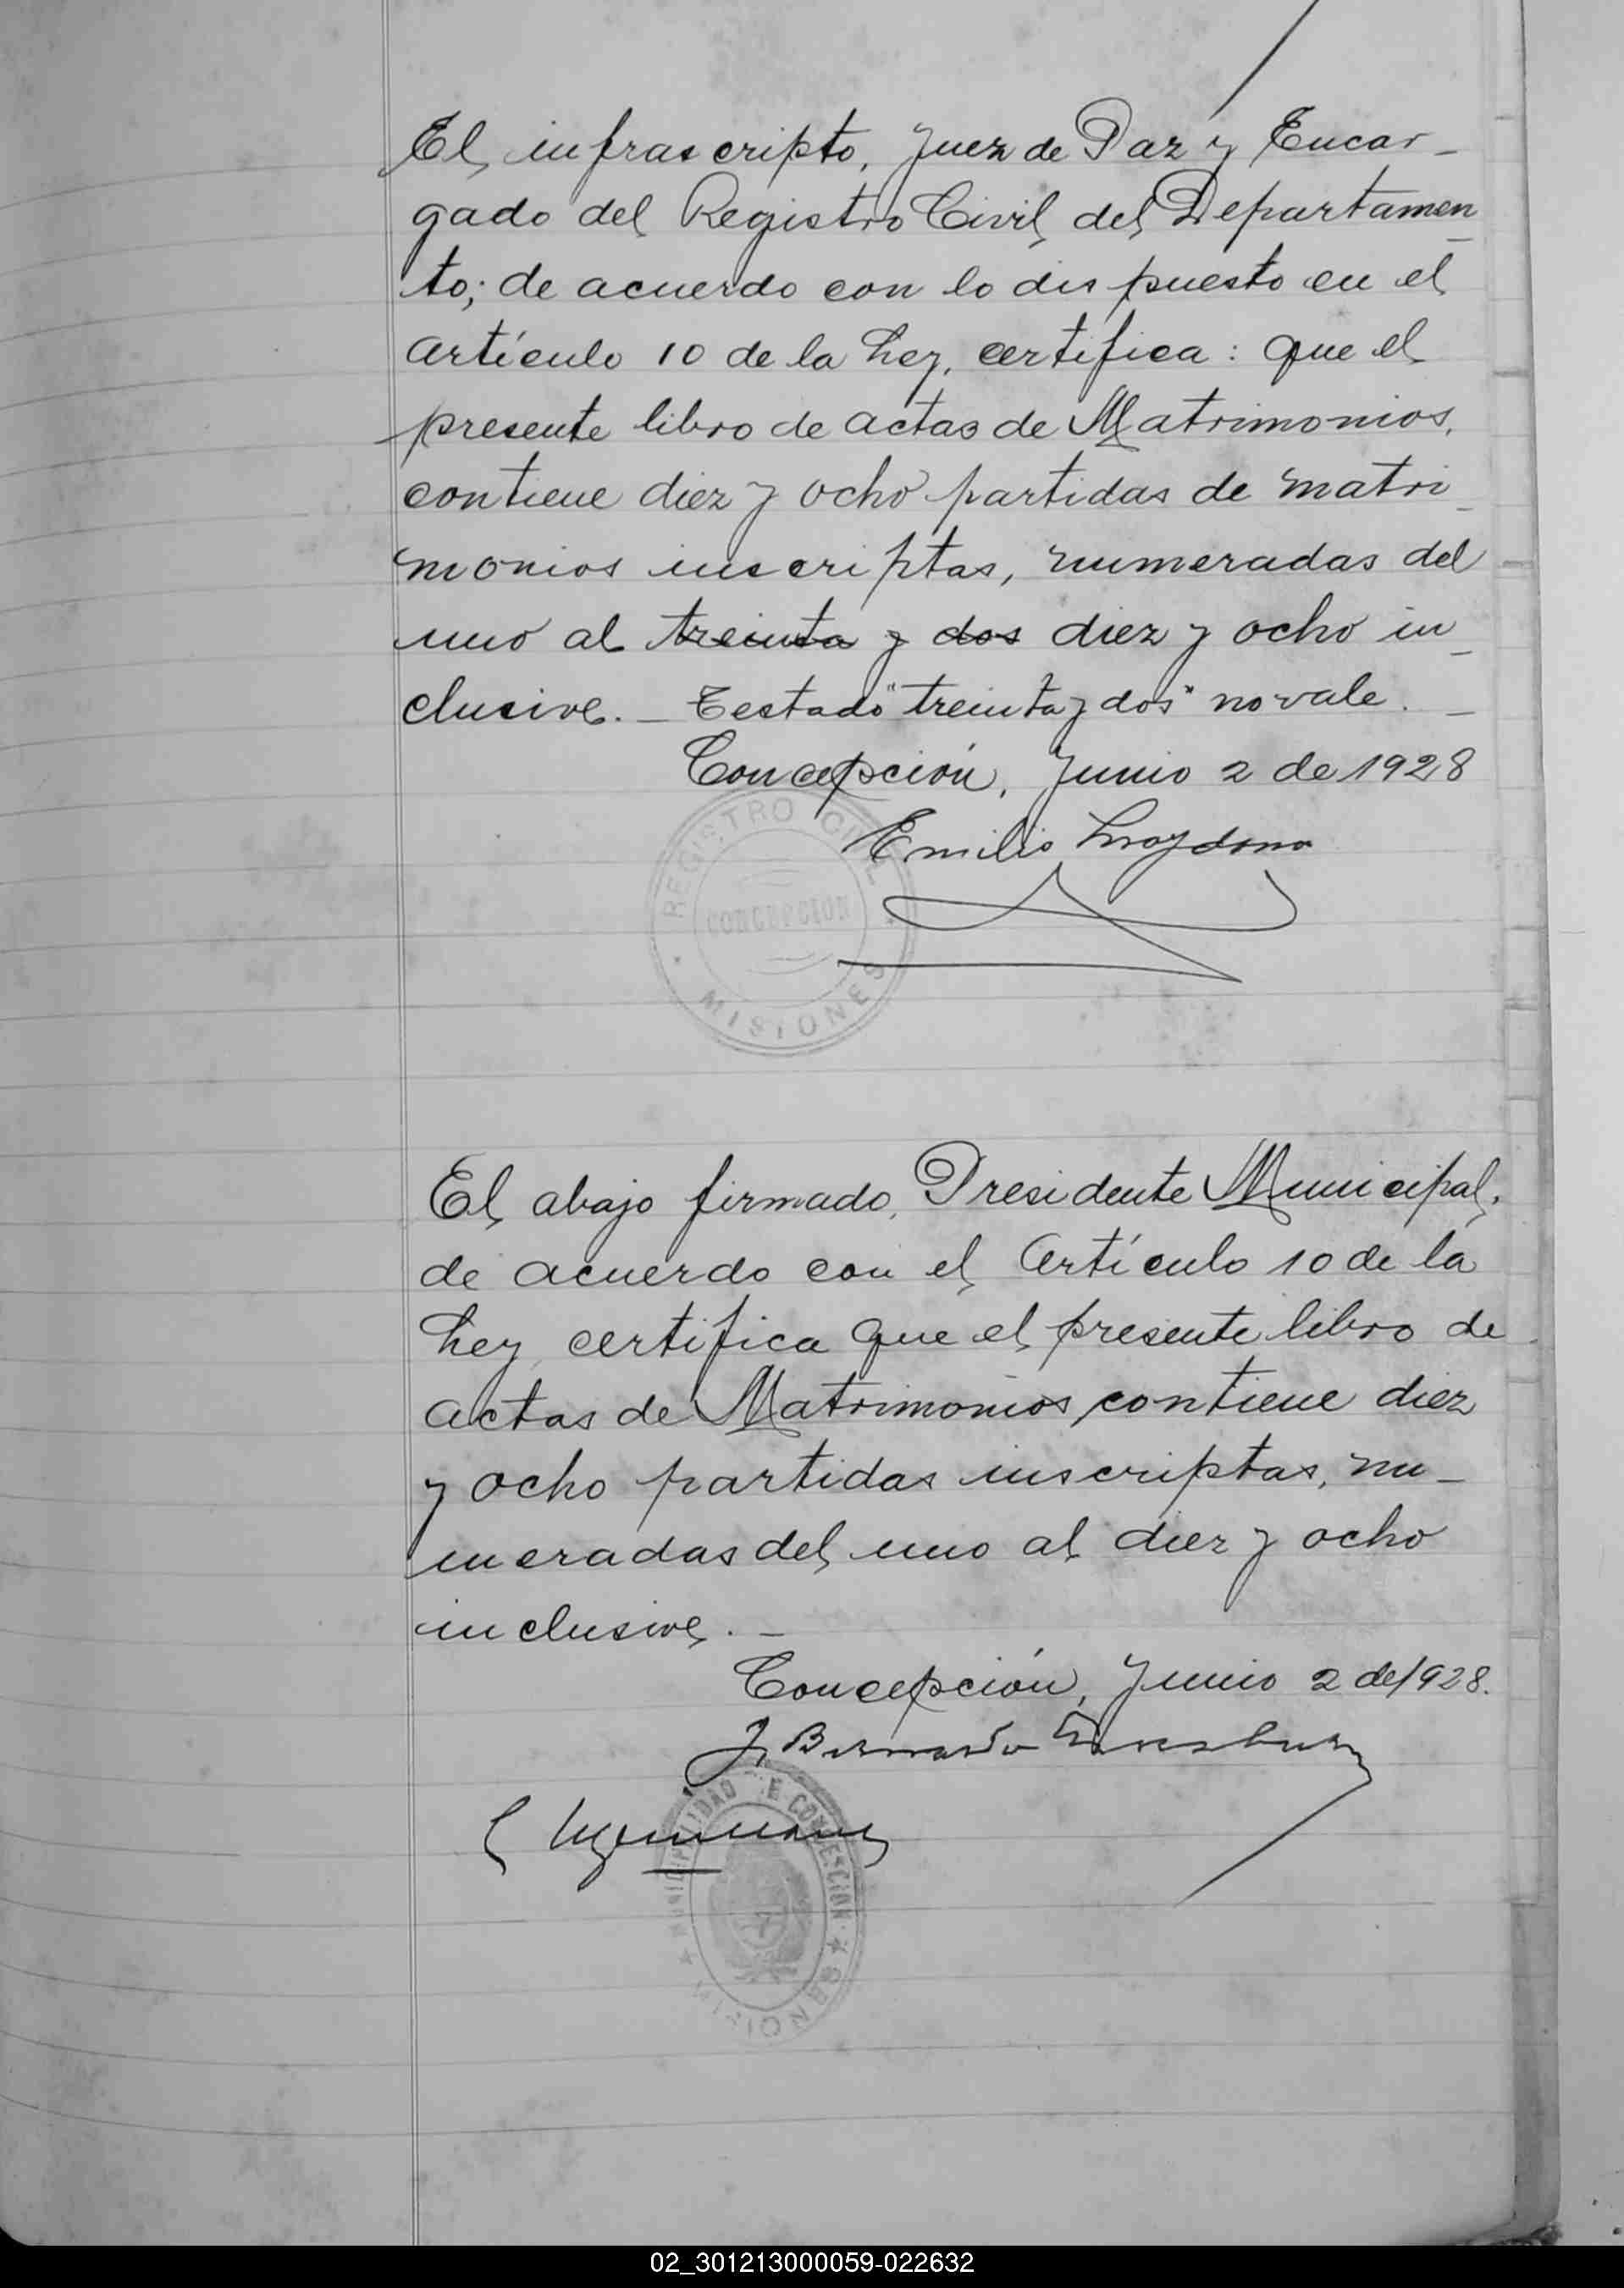 El infrascripto, Juez de Paz y Encar-
gado del Registro Civil del Departamen-
to; de acuerdo con lo dispuesto en el
artículo 10 de la Ley, certifica: que el
presente libro de actas de Matrimonios,
contiene diez y ocho partidas de matri-
monios inscriptas, numeradas del
uno al treinta y dos diez y ocho in-
clusive.- Testado "treinta y dos" no vale.-
Concepción, Junio 2 de 1928
Emilio
REGISTRO CIVIL
CONCEPCION
MISIONES
El abajo firmado, Presidente Municipal,
de acuerdo con el Artículo 10 de la
Ley certifica que el presente libro de
actas de Matrimonios contiene diez
y ocho partidas inscriptas, nu-
meradas del uno al diez y ocho
inclusive.-
Concepción, Junio 2 de 1928.
J. Bernardo
MUNICIPALIDAD DE CONCEPCION
MISIONES
02_301213000059-022632